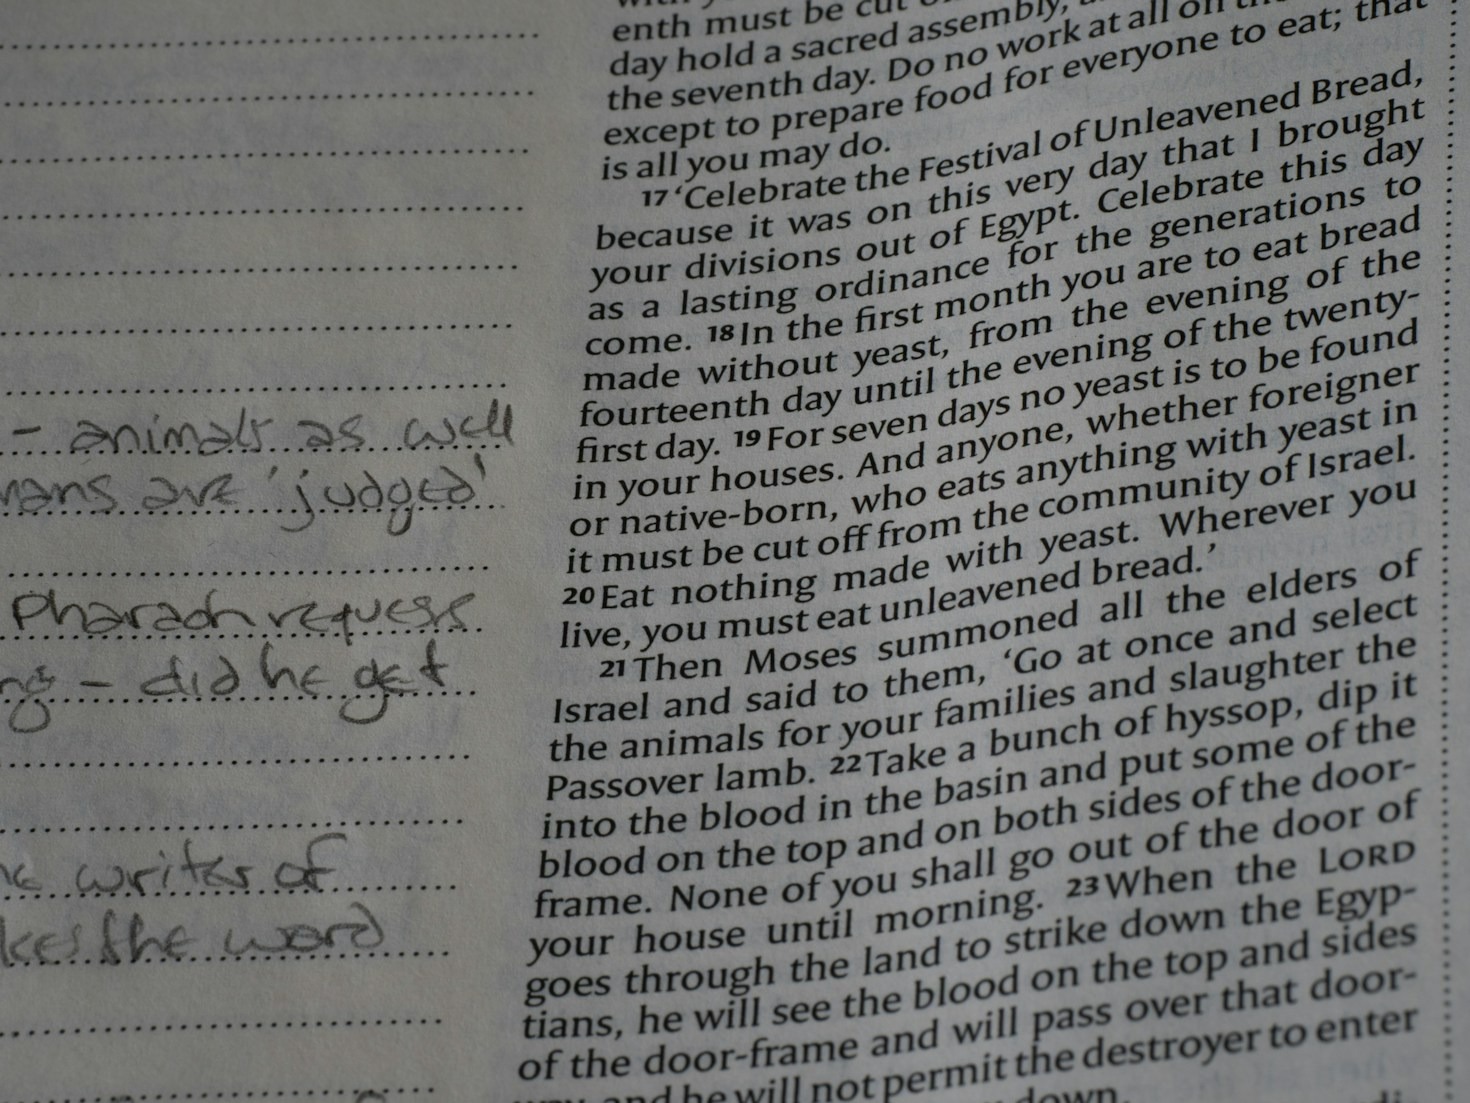 enth must be cut
day hold a sacred assembly,
the seventh day. Do no work at all on
except to prepare food for everyone to eat; that
is all you may do.
17 ‘Celebrate the Festival of Unleavened Bread,
because it was on this very day that I brought
your divisions out of Egypt. Celebrate this day
as a lasting ordinance for the generations to
come. 18 In the first month you are to eat bread
made without yeast, from the evening of the
fourteenth day until the evening of the twenty-
first day. 19 For seven days no yeast is to be found
in your houses. And anyone, whether foreigner
or native-born, who eats anything with yeast in
it must be cut off from the community of Israel.
20 Eat nothing made with yeast. Wherever you
live, you must eat unleavened bread.’
21 Then Moses summoned all the elders of
Israel and said to them, ‘Go at once and select
the animals for your families and slaughter the
Passover lamb. 22 Take a bunch of hyssop, dip it
into the blood in the basin and put some of the
blood on the top and on both sides of the door-
frame. None of you shall go out of the door of
your house until morning. 23 When the LORD
goes through the land to strike down the Egyp-
tians, he will see the blood on the top and sides
of the door-frame and will pass over that door-
and he will not permit the destroyer to enter
down.
– animals as well
are 'judged'
Pharaoh
– did he get
writer of
the word